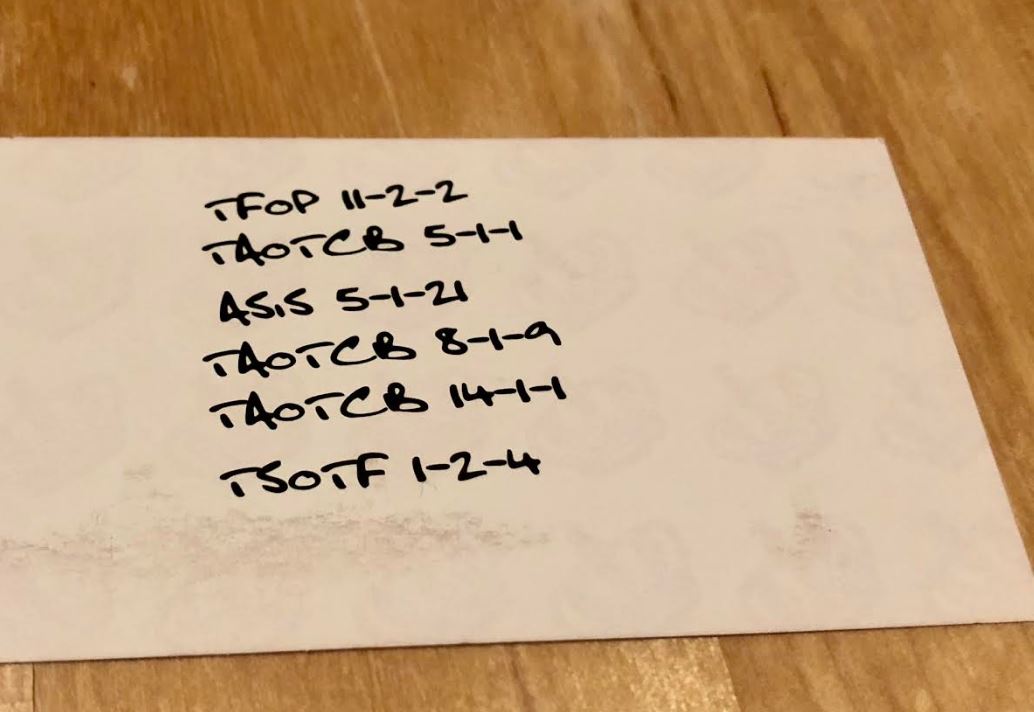 TFOP 11-2-2
TAOTCB 5-1-1
ASIS 5-1-21
TAOTCB 8-1-9
TAOTCB 14-1-1
TSOTF 1-2-4